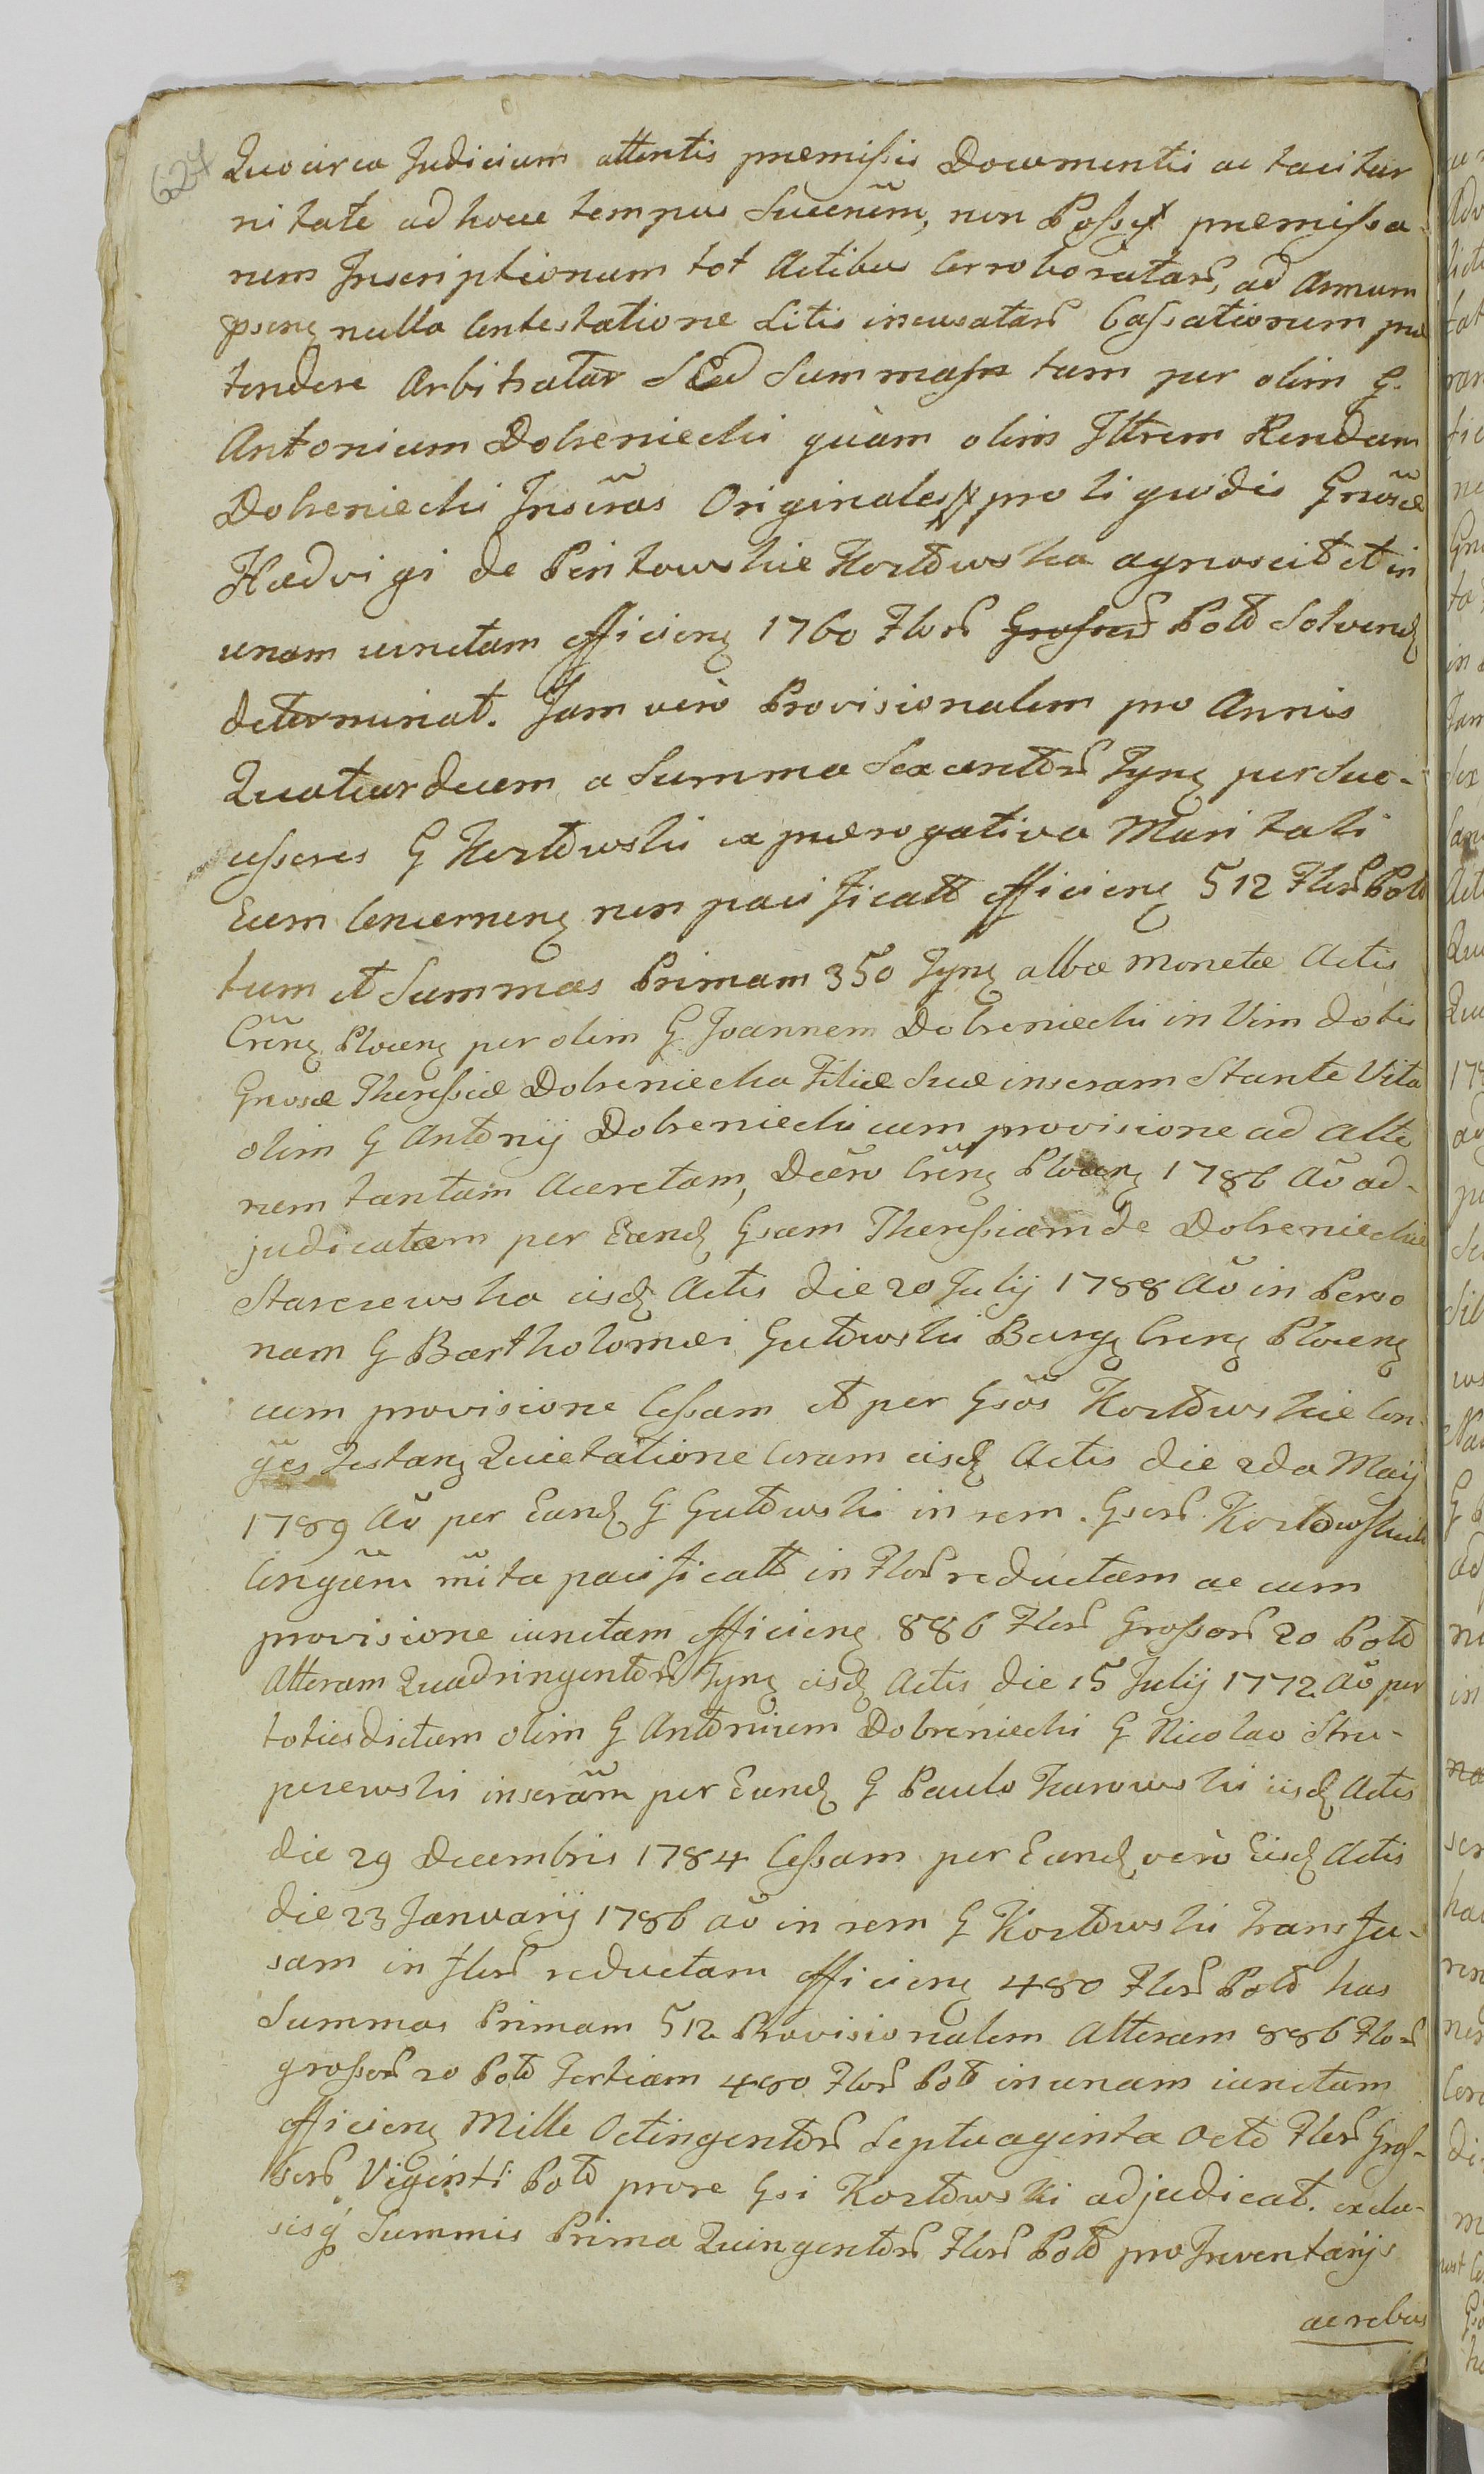 624
Quocirca Judicium attentis præmissis Documentis ac tacitur
nitate ad hocce tempus Succenīm, non Posse præmissa
rum Inscriptionum tot Actibus Corroboratarū, ad Annum
psenꝫ nulla Contestatione Litis incusatarū Cassationum præ
tendere Arbitratar Sed Summas tam per olim G.
Antonium Dobreniecki quàm olim Illrem Rndum
Dobreniecki Inscr̃as Originales pro liquidis Gnosæ
Hædvigi de Pintowskie Kozłowska agnoscit et in
unam iunctam efficienꝫ 1760 Flor̃ Grosser̃ Poło Solvendꝫ
determinat. Jam verò Provisionalem pro Annis
Quatuordecem a Summa Sexcentor̃ Tynꝫ per Suc-
cessores G Kozłowski ex prærogativa Maritali
Eum Concernenꝫ non pacificatt efficienꝫ 512 Flor̃ Poło
tum et Summas Primam 350 Tynꝫ albæ Monetæ Actis
Cr̃enꝫ Plocenꝫ per olim G Joannem Dobreniecki in Vim dotis
Gnosæ Theressiæ Dobreniecka Filiæ Suæ inscram Stante Vita
olim G Antonij Dobreniecki cum provisione ad alte
rum tantum Accretam, Decr̃o Cr̃enꝫ Plocenꝫ 1786 Aō ad-
judicatam per Eandꝫ Gsam Theressiam de Dobrenieckie
Starczewska iisdꝫ Actis die 20 Julij 1788 Aō in Perso
nam G Bartholomæi Gutowski Burgꝫ Crenꝫ Plocenꝫ
cum provisione Cessam et per Gsōs Kozłowskie Con-
ges Testanꝫ Quietatione Coram iisdꝫ Actis die 2da Maij
1789 Aō per Eundꝫ G Gutowski in rem Gsor̃ Kozłowskich
Congum m̃ita pacificatt in Flor̃ reductam ac cum
provisione iunctam efficienꝫ 886 Flor̃ Grossor̃ 20 Poło
Alteram Quadringentor̃ Tynꝫ iisdꝫ Actis die 15 Julij 1772 Aō per
totiesdictum olim G Antonium Dobreniecki G Nicolao Stru-
pczewski inscram per Eundꝫ G Paulo Karowski iisdꝫ Actis
die 29 Decembris 1784 Cessam per Eundꝫ verò Eisdꝫ Actis
die 23 Januarij 1786 aō in rem G Kozłowski transfu-
sam in flor̃ reductam efficienꝫ 480 Flor̃ Poło has
Summas Primam 512 Provisionalem Alteram 886 Flor̃
grossor̃ 20 Poło Tertiam 480 Flor̃ Poło in unam iunctam
efficienꝫ Mille Octingentor̃ Septuaginta Octo Flor̃ Gros-
sor̃ Viginti Poło prore Gsi Kozłowski adjudicat. exclu-
sisq́ Summis Prima Quingentor̃ Flor̃ Poło pro Inventarijs
ac rebus